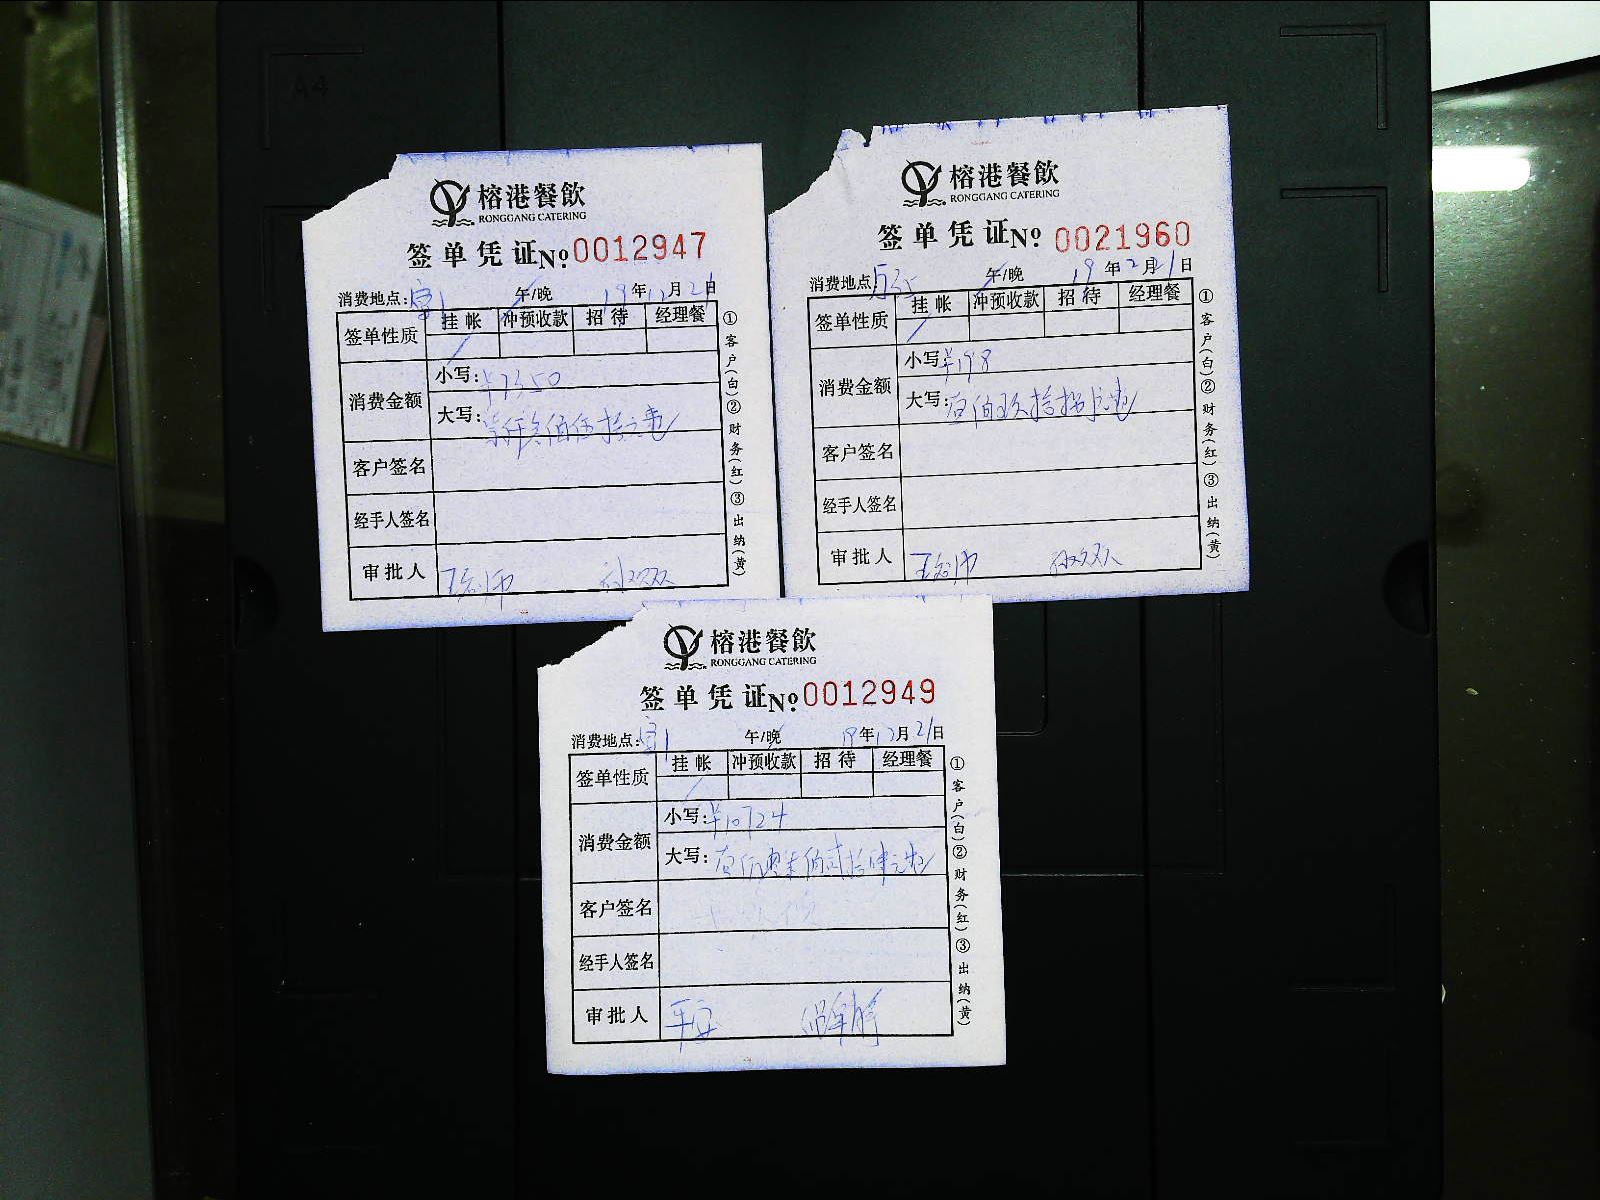 榕港餐飲
RONGGANG CATERING
签单凭证No.0012947
消费地点: 宴1 午/晚 19年12月21日
签单性质 挂帐 冲预收款 招待 经理餐
消费金额
小写: ¥7350
大写: 柒仟叁佰伍拾元
客户签名
经手人签名
审批人
①客户(白)②财务(红)③出纳(黄)
榕港餐飲
RONGGANG CATERING
签单凭证No.0021960
消费地点 午/晚 19年2月21日
签单性质 挂帐 冲预收款 招待 经理餐
消费金额
小写 ¥198
大写: 壹佰玖拾捌元
客户签名
经手人签名
审批人
①客户(白)②财务(红)③出纳(黄)
榕港餐飲
RONGGANG CATERING
签单凭证No.0012949
消费地点: 宴1 午/晚 19年12月21日
签单性质 挂帐 冲预收款 招待 经理餐
消费金额
小写: ¥10724
大写: 壹万零柒佰贰拾肆元
客户签名
经手人签名
审批人
①客户(白)②财务(红)③出纳(黄)
A4